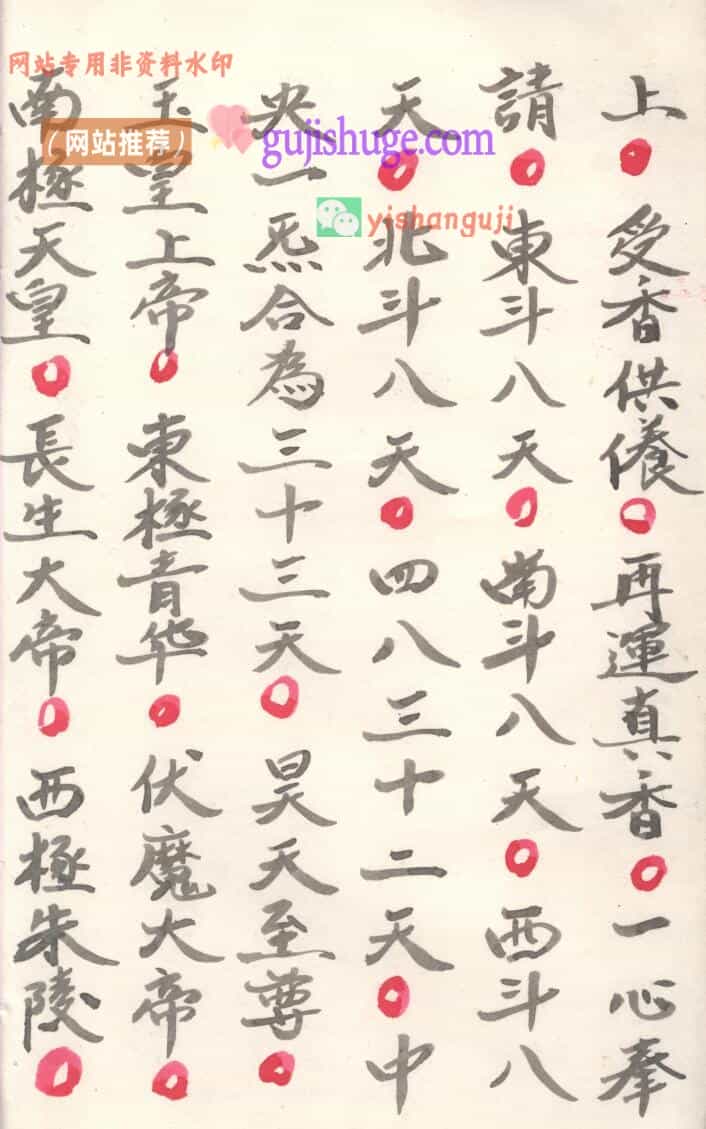 网站专用非资料水印
（网站推荐）
gujishuge.com
yishanguji
上〇受香供養〇再運真香〇一心奉
請〇東斗八天〇南斗八天〇西斗八
天〇北斗八天〇四八三十二天〇中
央一炁合為三十三天〇昊天至尊〇
玉皇上帝〇東極青华〇伏魔大帝〇
南極天皇〇長生大帝〇西極朱陵〇